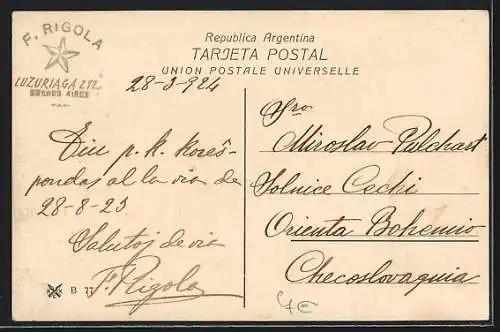 F. RIGOLA
LUZURIAGA 272
BUENOS AIRES
Republica Argentina
TARJETA POSTAL
UNION POSTALE UNIVERSELLE
28-3-924
Tiu p. k. korês-
pondas al la via de
28-8-23
Salutoj de via
F. Rigola
B 77
Sro
Miroslav Pulchart
Solnice Cechi
Orienta Bohemio
Checoslovaquia
7€